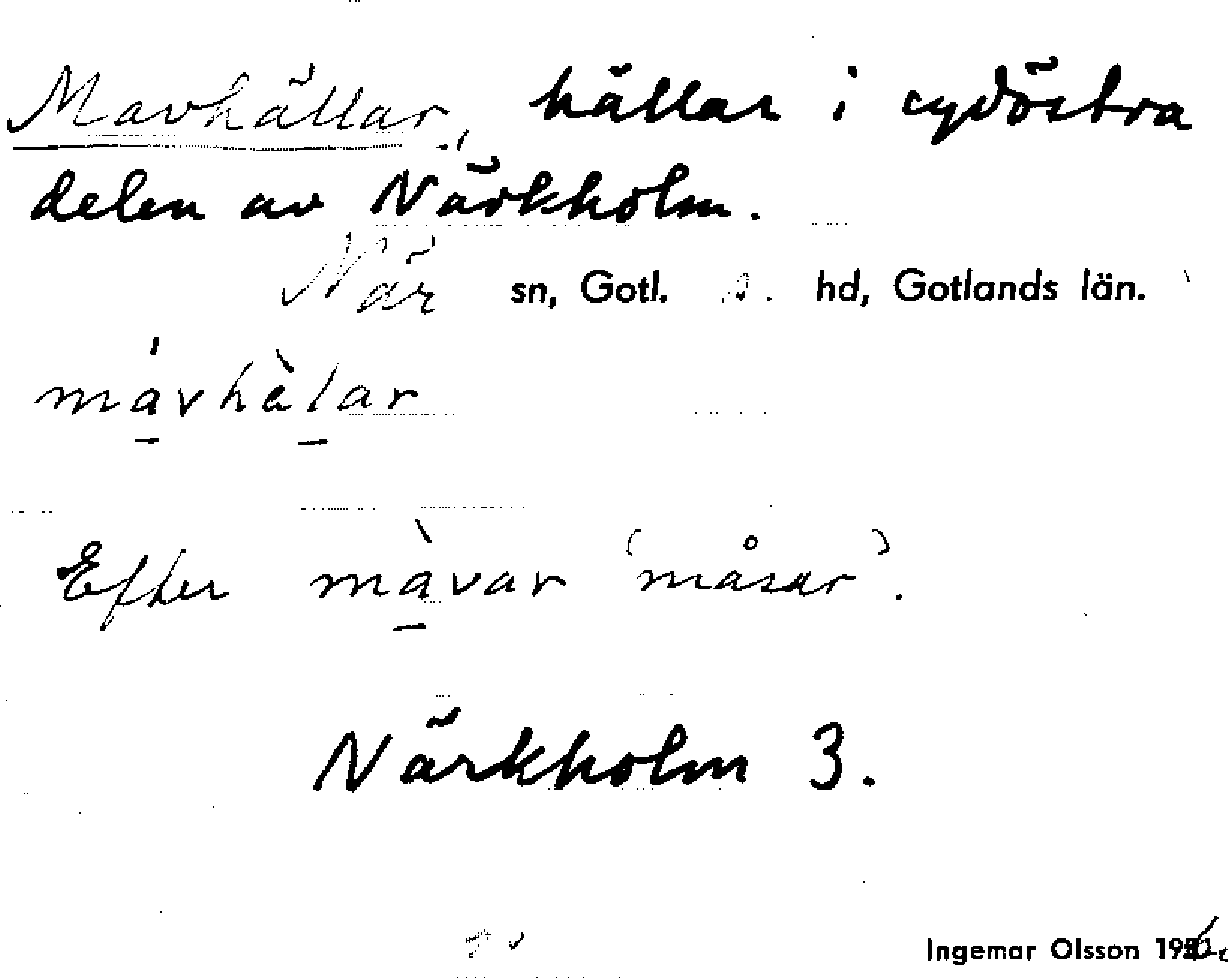 Mavhällar, hällar i sydöstra
delen av Närkholm.
När sn, Gotl. S. hd, Gotlands län.
mávhàlar
Efter màvar (måsar).
Närkholm 3.
Ingemar Olsson